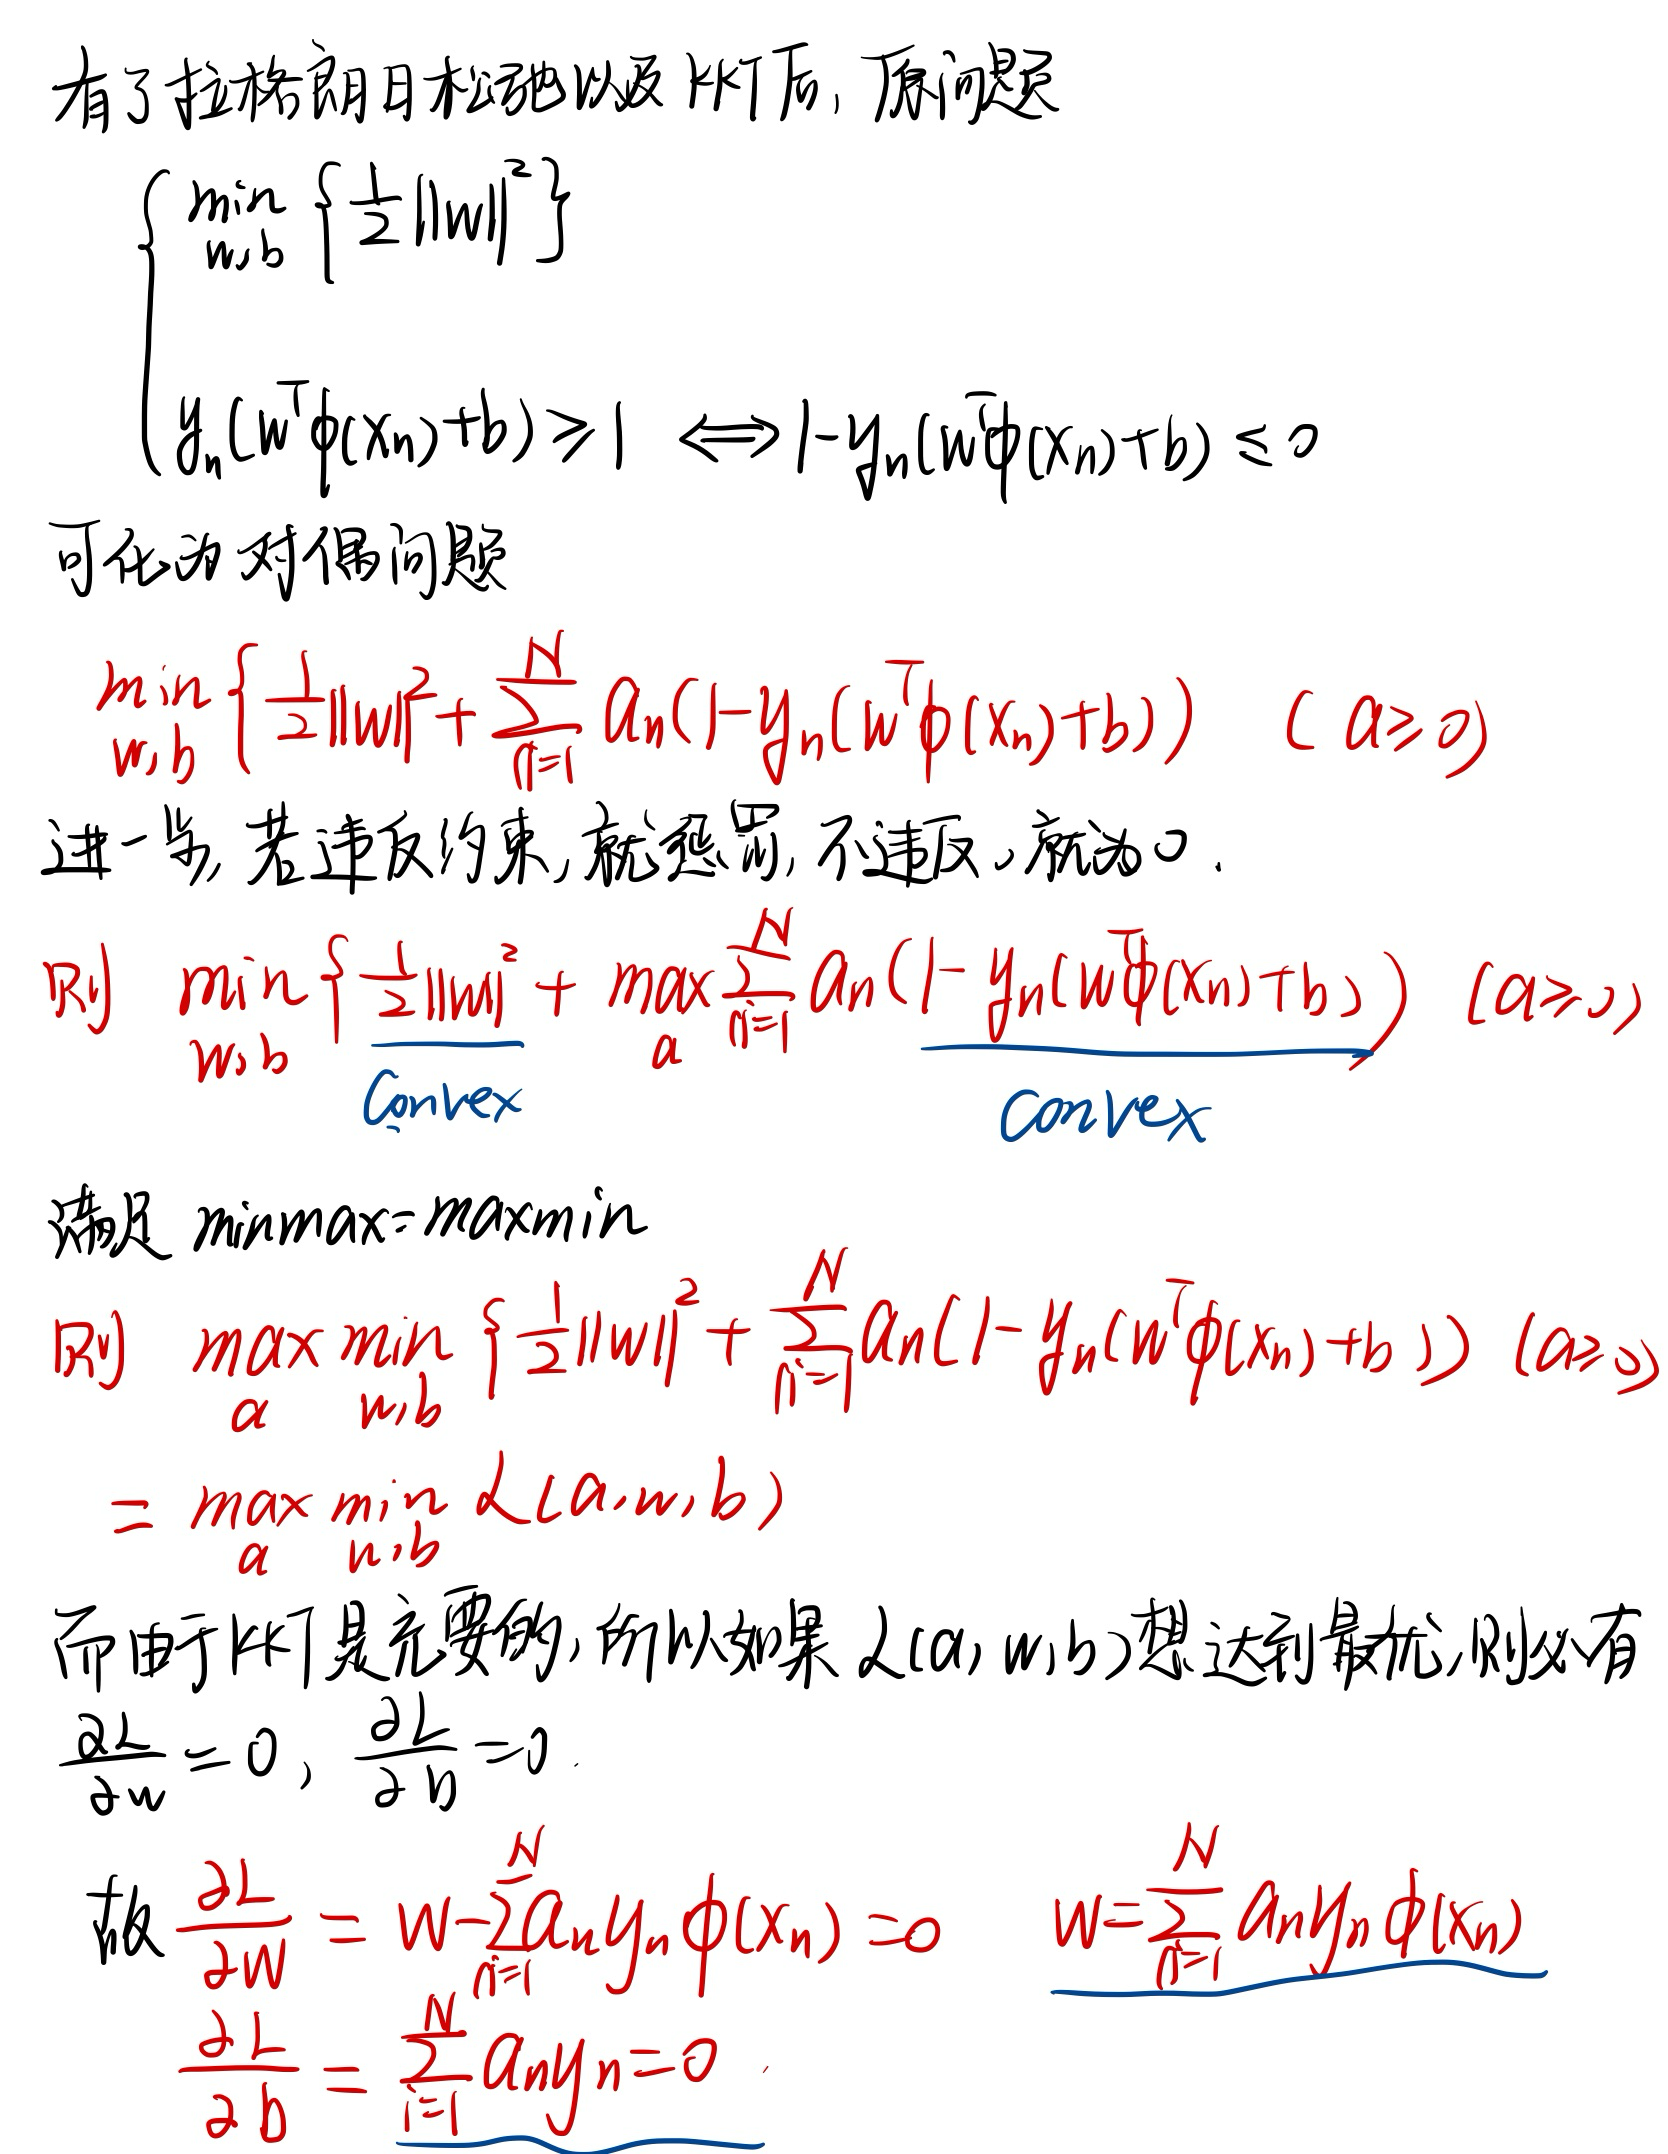 有了拉格朗日松弛以及KKT后,原问题
{ min w,b {1/2 ||w||²}
y_n(w^Tφ(x_n)+b) ≥ 1 ⟺ 1-y_n(w^Tφ(x_n)+b) ≤ 0
可化为对偶问题
min w,b { 1/2 ||w||² + Σ_{n=1}^N a_n(1-y_n(w^Tφ(x_n)+b)) (a≥0)
进一步,若违反约束,就惩罚,不违反,就为0.
则 min w,b { 1/2 ||w||² + max a Σ_{n=1}^N a_n(1-y_n(w^Tφ(x_n)+b)) (a≥0)
Convex convex
满足 minmax=maxmin
则 max a min w,b { 1/2 ||w||² + Σ_{n=1}^N a_n(1-y_n(w^Tφ(x_n)+b)) (a≥0)
= max a min w,b L(a,w,b)
而由于KKT是充要的,所以如果L(a,w,b)想达到最优,则必有
∂L/∂w = 0, ∂L/∂b = 0.
故 ∂L/∂w = w-Σ_{n=1}^N a_n y_n φ(x_n) = 0 w=Σ_{n=1}^N a_n y_n φ(x_n)
∂L/∂b = Σ_{i=1}^N a_n y_n = 0